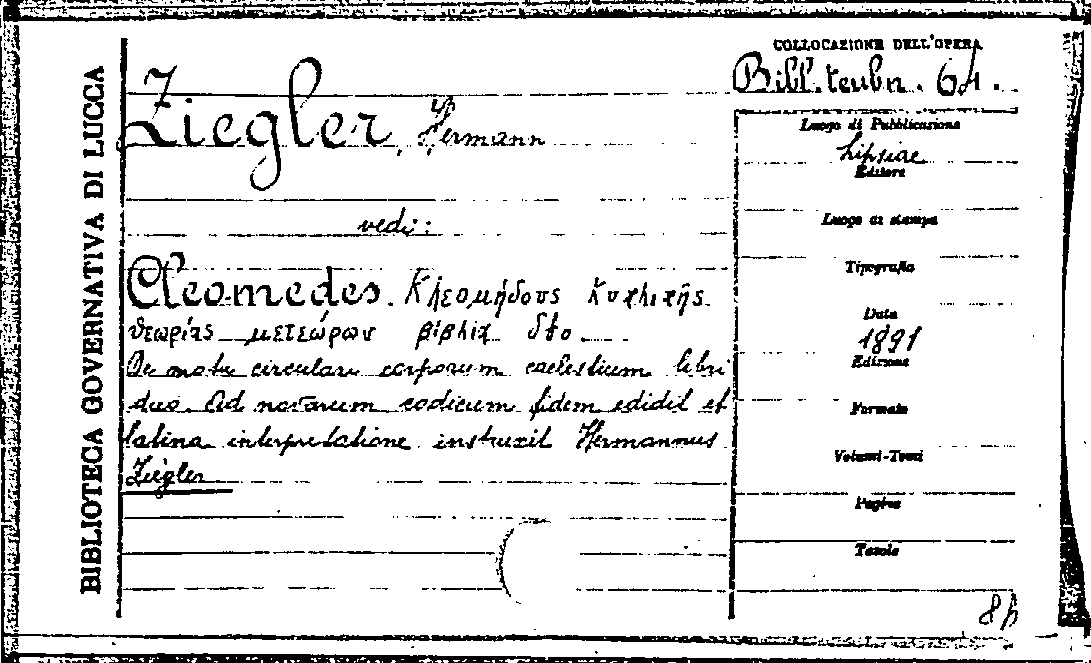 BIBLIOTECA GOVERNATIVA DI LUCCA
COLLOCAZIONE DELL'OPERA
Bibl. teubn. 64.
Ziegler, Hermann
vedi:
Cleomedes. Κλεομήδους κυκλικῆς
θεωρίας μετεώρων βιβλία δύο
De motu circulari corporum caelestium libri
duo. Ad novorum codicum fidem edidit et
latina interpretatione instruxit Hermannus
Ziegler
Luogo di Pubblicazione
Lipsiae
Editore
Luogo di stampa
Tipografia
Data
1891
Edizione
Formato
Volumi-Tomi
Pagine
Tavole